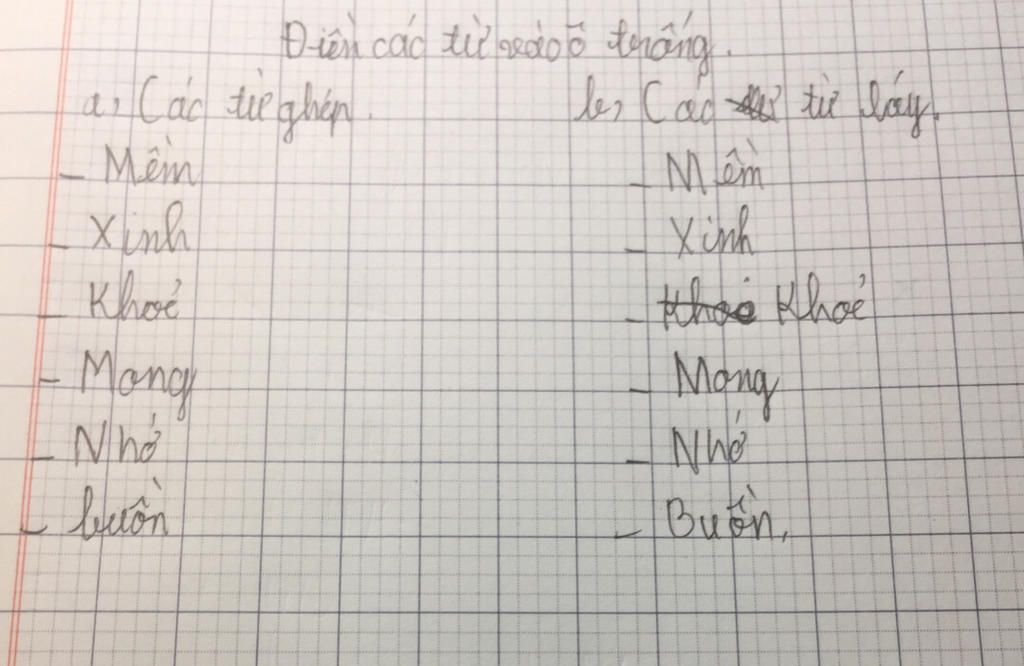 Điền các từ vào ô trống.
a, Các từ ghép. b, Các từ láy.
- Mềm - Mềm
- Xinh - Xinh
- Khoẻ - Khoẻ Khoẻ
- Mong - Mong
- Nhớ - Nhớ
- buồn - Buồn,